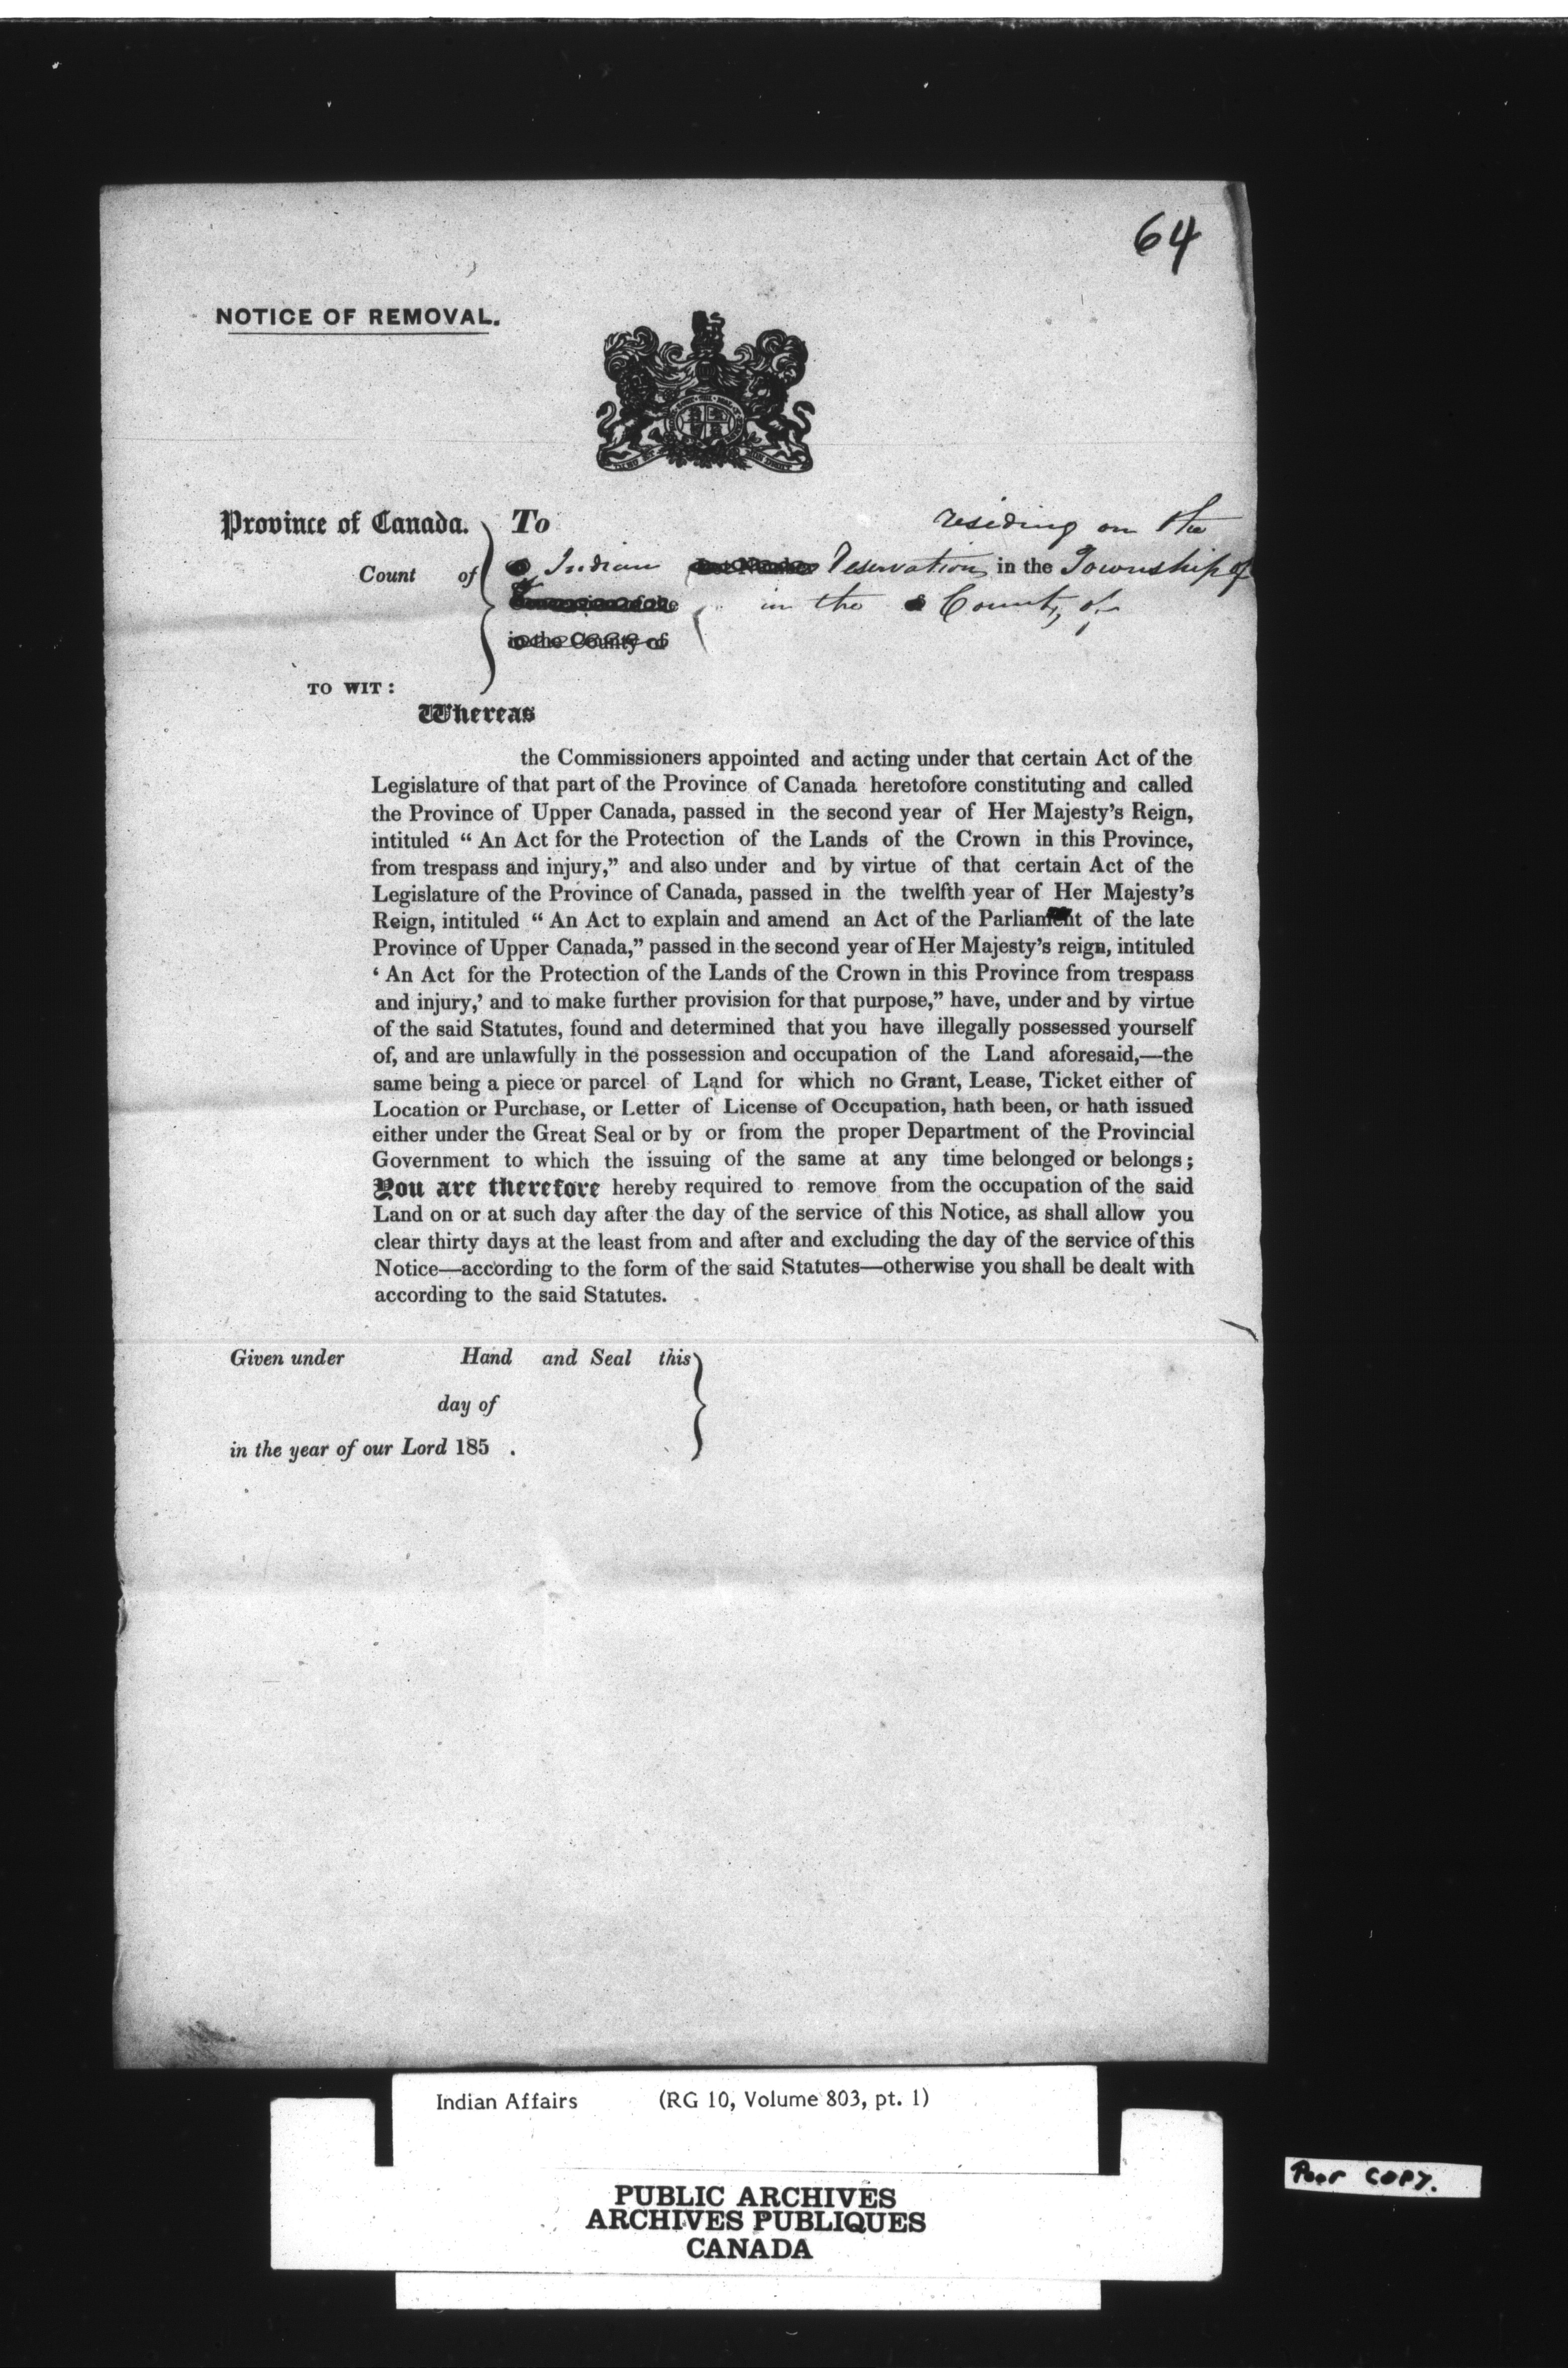 64
NOTICE OF REMOVAL.
Province of Canada. To residing on the
Count of Indian Reservation in the Township of
in the County of
in the County of
TO WIT:
Whereas
the Commissioners appointed and acting under that certain Act of the
Legislature of that part of the Province of Canada heretofore constituting and called
the Province of Upper Canada, passed in the second year of Her Majesty's Reign,
intituled “ An Act for the Protection of the Lands of the Crown in this Province,
from trespass and injury,” and also under and by virtue of that certain Act of the
Legislature of the Province of Canada, passed in the twelfth year of Her Majesty's
Reign, intituled “ An Act to explain and amend an Act of the Parliament of the late
Province of Upper Canada,” passed in the second year of Her Majesty's reign, intituled
‘ An Act for the Protection of the Lands of the Crown in this Province from trespass
and injury,’ and to make further provision for that purpose,” have, under and by virtue
of the said Statutes, found and determined that you have illegally possessed yourself
of, and are unlawfully in the possession and occupation of the Land aforesaid,—the
same being a piece or parcel of Land for which no Grant, Lease, Ticket either of
Location or Purchase, or Letter of License of Occupation, hath been, or hath issued
either under the Great Seal or by or from the proper Department of the Provincial
Government to which the issuing of the same at any time belonged or belongs;
You are therefore hereby required to remove from the occupation of the said
Land on or at such day after the day of the service of this Notice, as shall allow you
clear thirty days at the least from and after and excluding the day of the service of this
Notice—according to the form of the said Statutes—otherwise you shall be dealt with
according to the said Statutes.
Given under Hand and Seal this
day of
in the year of our Lord 185 .
Indian Affairs (RG 10, Volume 803, pt. 1)
PUBLIC ARCHIVES
ARCHIVES PUBLIQUES
CANADA
Poor COPY.